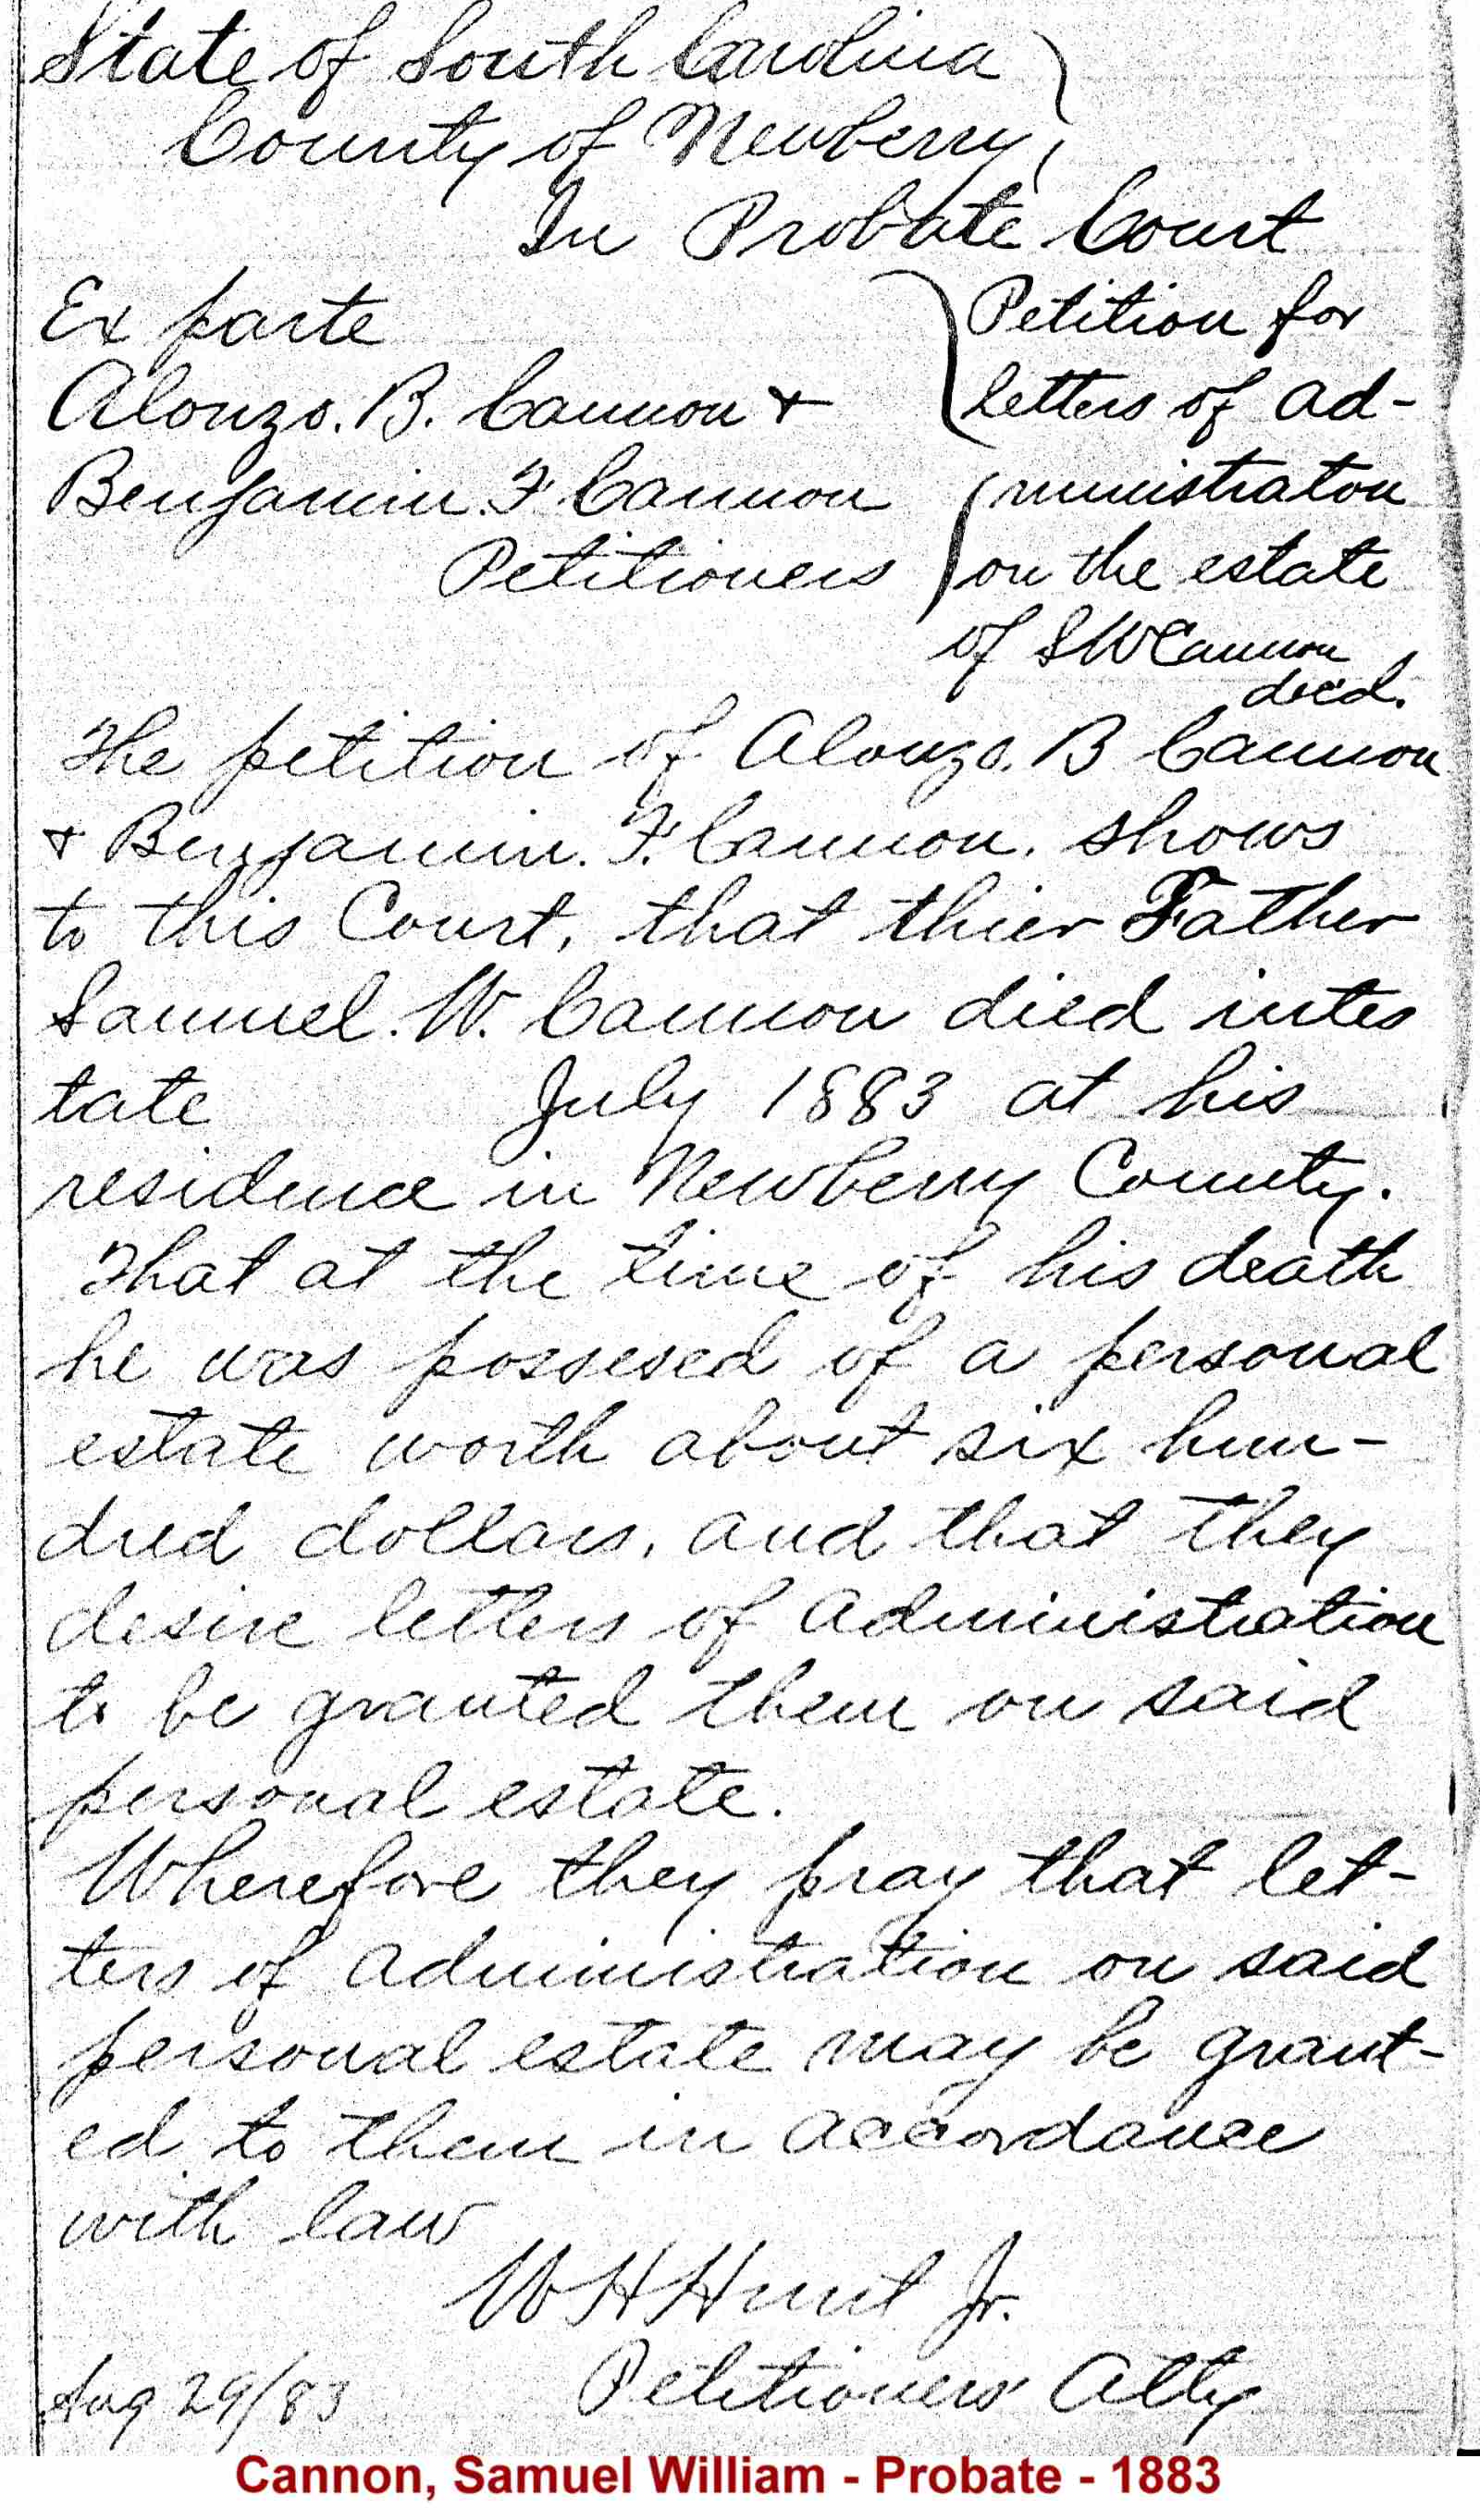 State of South Carolina
County of Newberry
In Probate Court
Ex parte
Alonzo. B. Cannon +
Benjamin. F Cannon
Petitioners
Petition for
letters of ad-
ministraton
on the estate
of S W Cannon
decd.
The petition of Alonzo. B Cannon
+ Benjamin. F. Cannon. shows
to this Court, that thier Father
Samuel. W. Cannon died intes
tate July 1883 at his
residence in Newberry County.
That at the time of his death
he was possesed of a personal
estate worth about six hun-
dred dollars, and that they
desire letters of administration
to be granted them on said
personal estate.
Wherefore they pray that let-
ters of administration on said
personal estate may be grant-
ed to them in accordance
with law
W H Hunt Jr.
Petitioners' Atty
Aug 29/83
Cannon, Samuel William - Probate - 1883